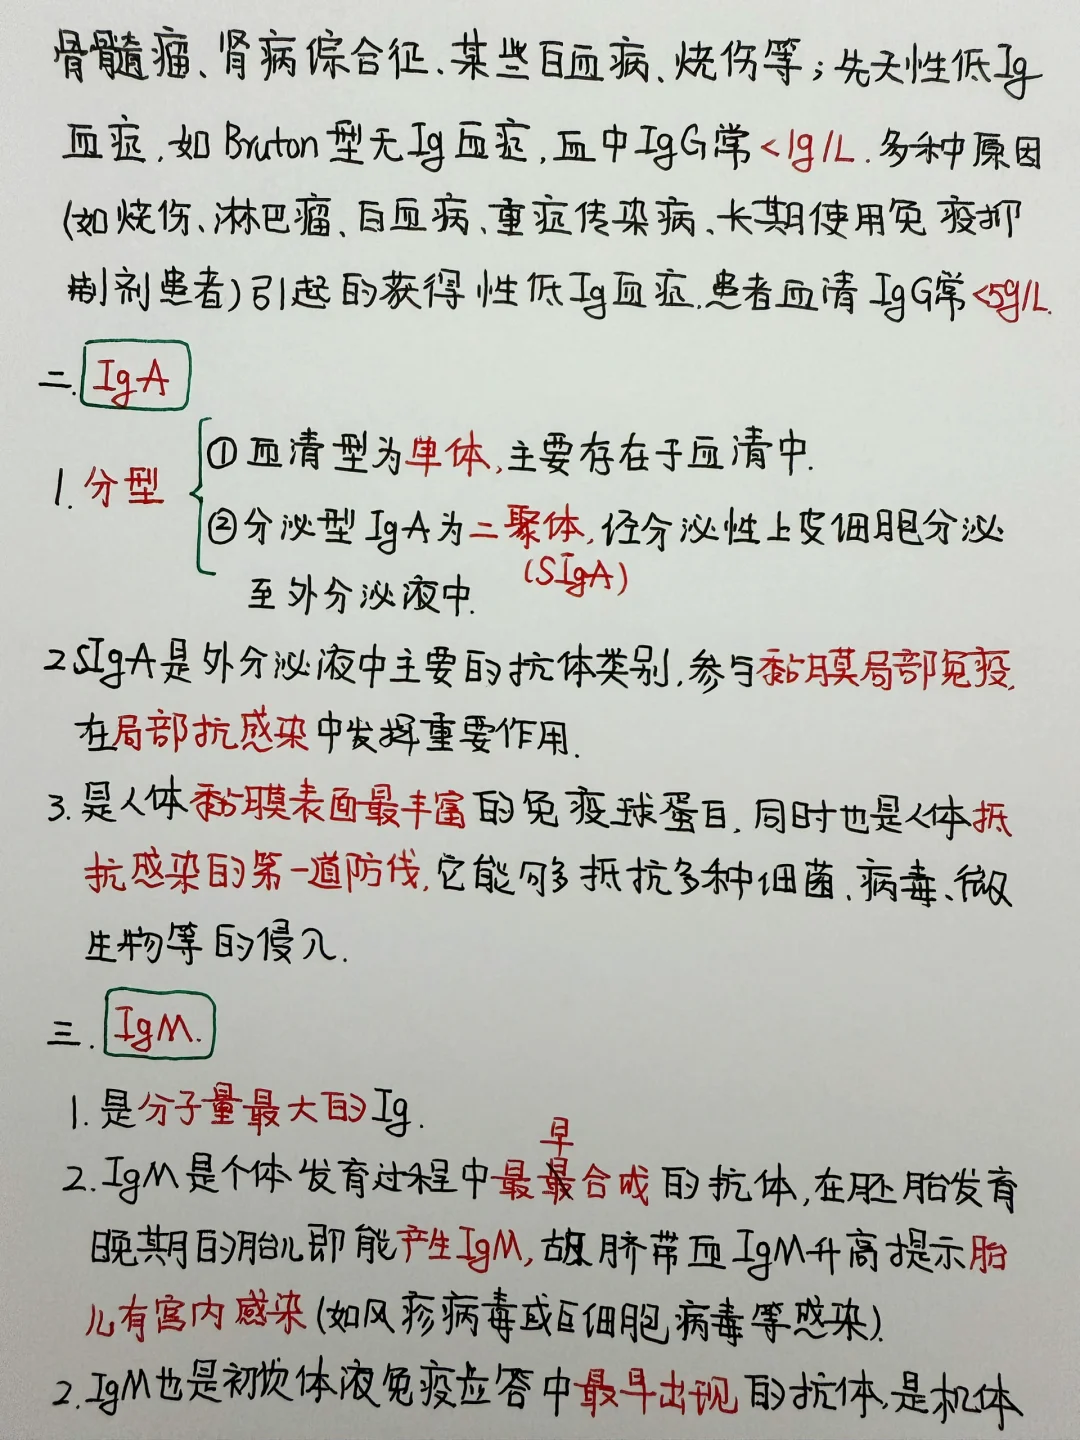 骨髓瘤、肾病综合征、某些白血病、烧伤等；先天性低Ig
血症，如Bruton型无Ig血症，血中IgG常<1g/L．多种原因
(如烧伤、淋巴瘤、白血病、重症传染病、长期使用免疫抑
制剂患者)引起的获得性低Ig血症．患者血清IgG常<5g/L．
二．IgA
1．分型
①血清型为单体，主要存在于血清中．
②分泌型IgA为二聚体，经分泌性上皮细胞分泌
(SIgA)
至外分泌液中．
2SIgA是外分泌液中主要的抗体类别，参与黏膜局部免疫，
在局部抗感染中发挥重要作用．
3．是人体黏膜表面最丰富的免疫球蛋白，同时也是人体抵
抗感染的第一道防线，它能够多抵抗多种细菌、病毒、微
生物等的侵入．
三．IgM．
1．是分子量最大的Ig．
早
2．IgM是个体发育过程中最最合成的抗体，在胚胎发育
晚期的胎儿即能产生IgM，故脐带血IgM升高提示胎
儿有宫内感染(如风疹病毒或巨细胞病毒等感染)．
2．IgM也是初次体液免疫应答中最早出现的抗体，是机体